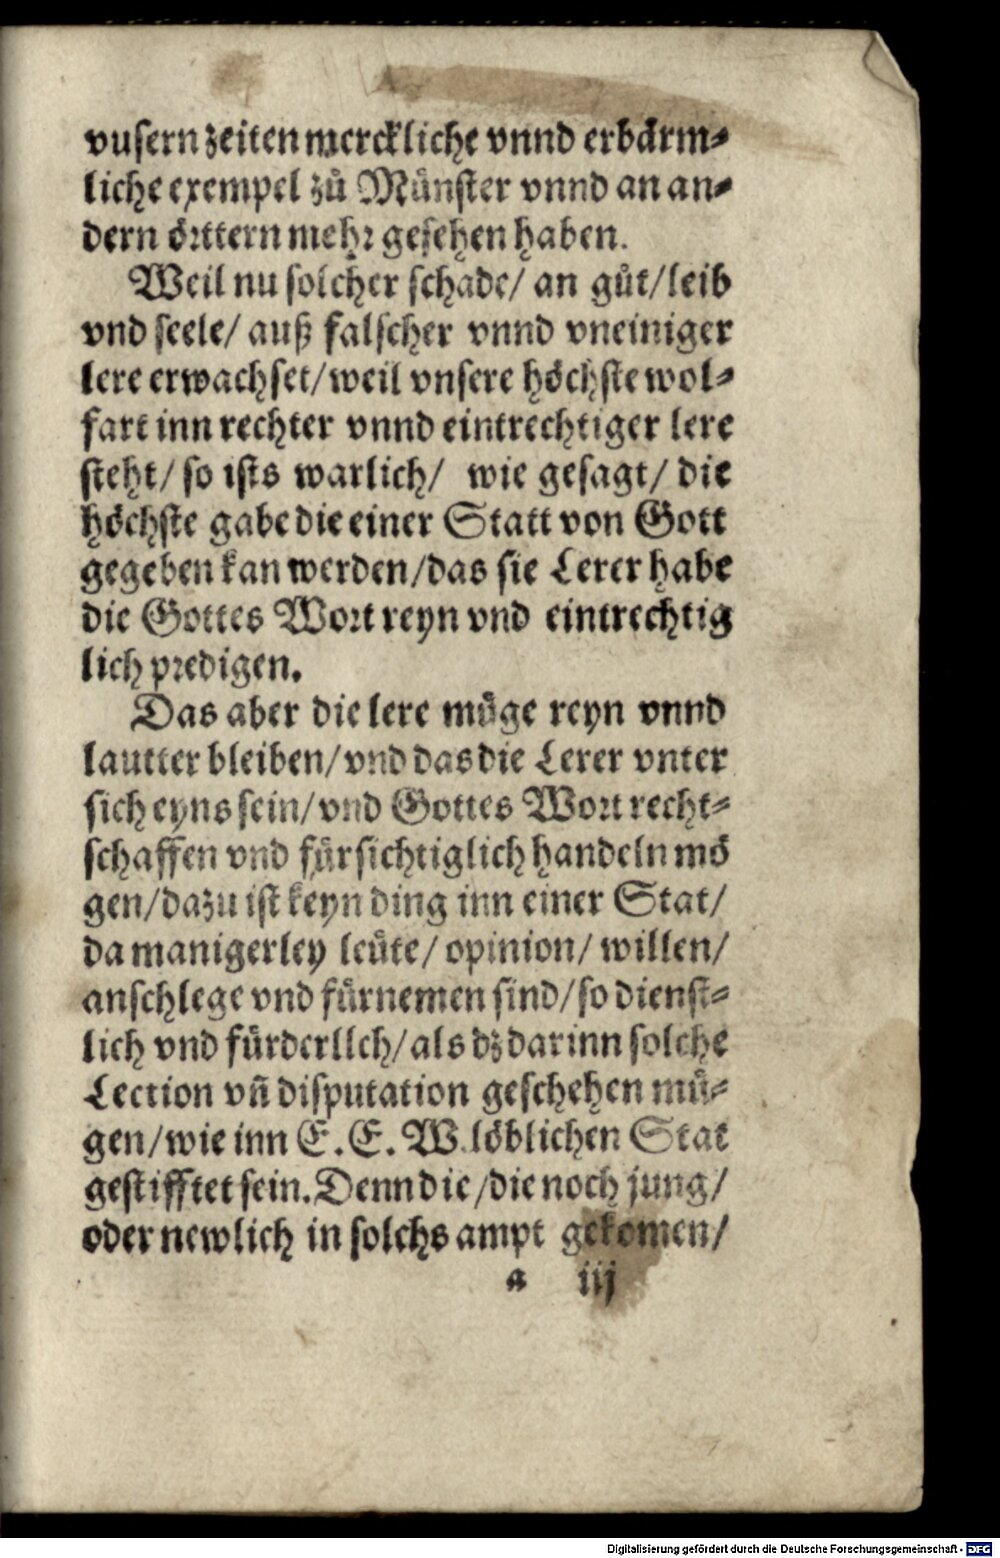 vusern zeiten merckliche vnnd erbärm⸗
liche exempel zů Münster vnnd an an⸗
dern örttern mehr gesehen haben.
Weil nu solcher schade/ an gůt/leib
vnd seele/ auß falscher vnnd vneiniger
lere erwachset/weil vnsere höchste wol⸗
fart inn rechter vnnd eintrechtiger lere
steht/ so ists warlich/ wie gesagt/ die
höchste gabe die einer Statt von Gott
gegeben kan werden/das sie Lerer habe
die Gottes Wort reyn vnd eintrechtig
lich predigen.
Das aber die lere müge reyn vnnd
lautter bleiben/vnd das die Lerer vnter
sich eyns sein/vnd Gottes Wort recht⸗
schaffen vnd fürsichtiglich handeln mö
gen/dazu ist keyn ding inn einer Stat/
da manigerley leüte/ opinion/ willen/
anschlege vnd fürnemen sind/so dienst⸗
lich vnd fürderllch/als dz darinn solche
Lection vñ disputation geschehen mü⸗
gen/wie inn E.E.W.löblichen Stat
gestifftet sein. Denn die/die noch jung/
oder newlich in solchs ampt gekomen/
a iij
Digitalisierung gefördert durch die Deutsche Forschungsgemeinschaft - DFG